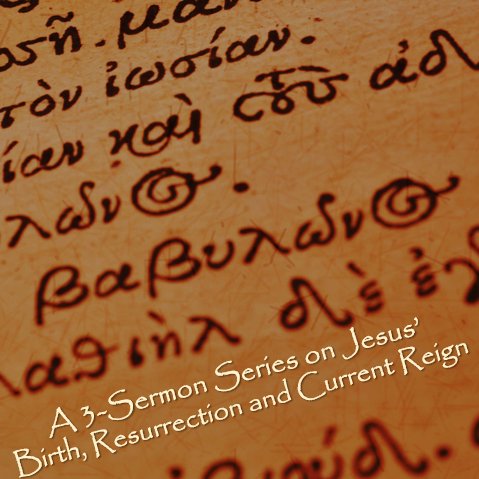 σσῆ. μαν
τὸν ἰωσίαν.
ίαν καὶ τοὺ ἀδ
υλῶνος.
βαβυλῶνος
λαθιὴλ δὲ ἐγ
A 3-Sermon Series on Jesus’
Birth, Resurrection and Current Reign